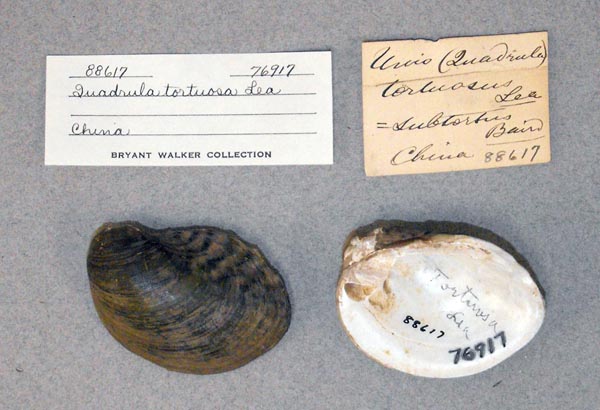 88617 76917
Quadrula tortuosa Lea
China
BRYANT WALKER COLLECTION
Unio (Quadrula)
tortuosus
Lea
= subtortus
Baird
China 88617
Tortuosa
Lea
88617
76917